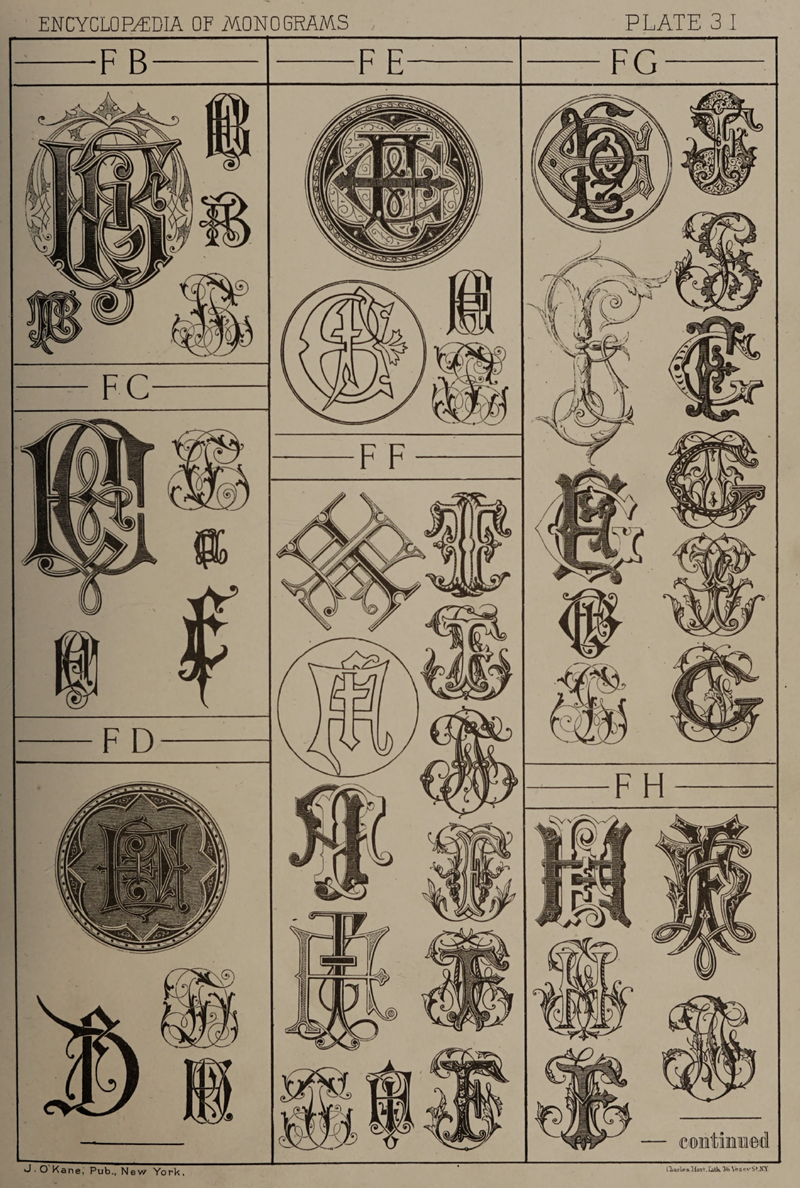 ENCYCLOPÆDIA OF MONOGRAMS
PLATE 31
F B
F C
F D
F E
F F
F G
F H
— continued
J. O'Kane, Pub., New York.
Charles Hart, Lith. 36 Vesey St. N.Y.